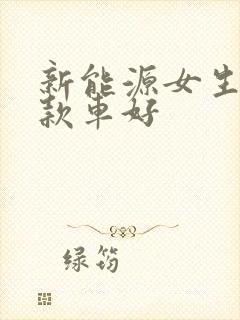 新能源女生
款车好
绿筠